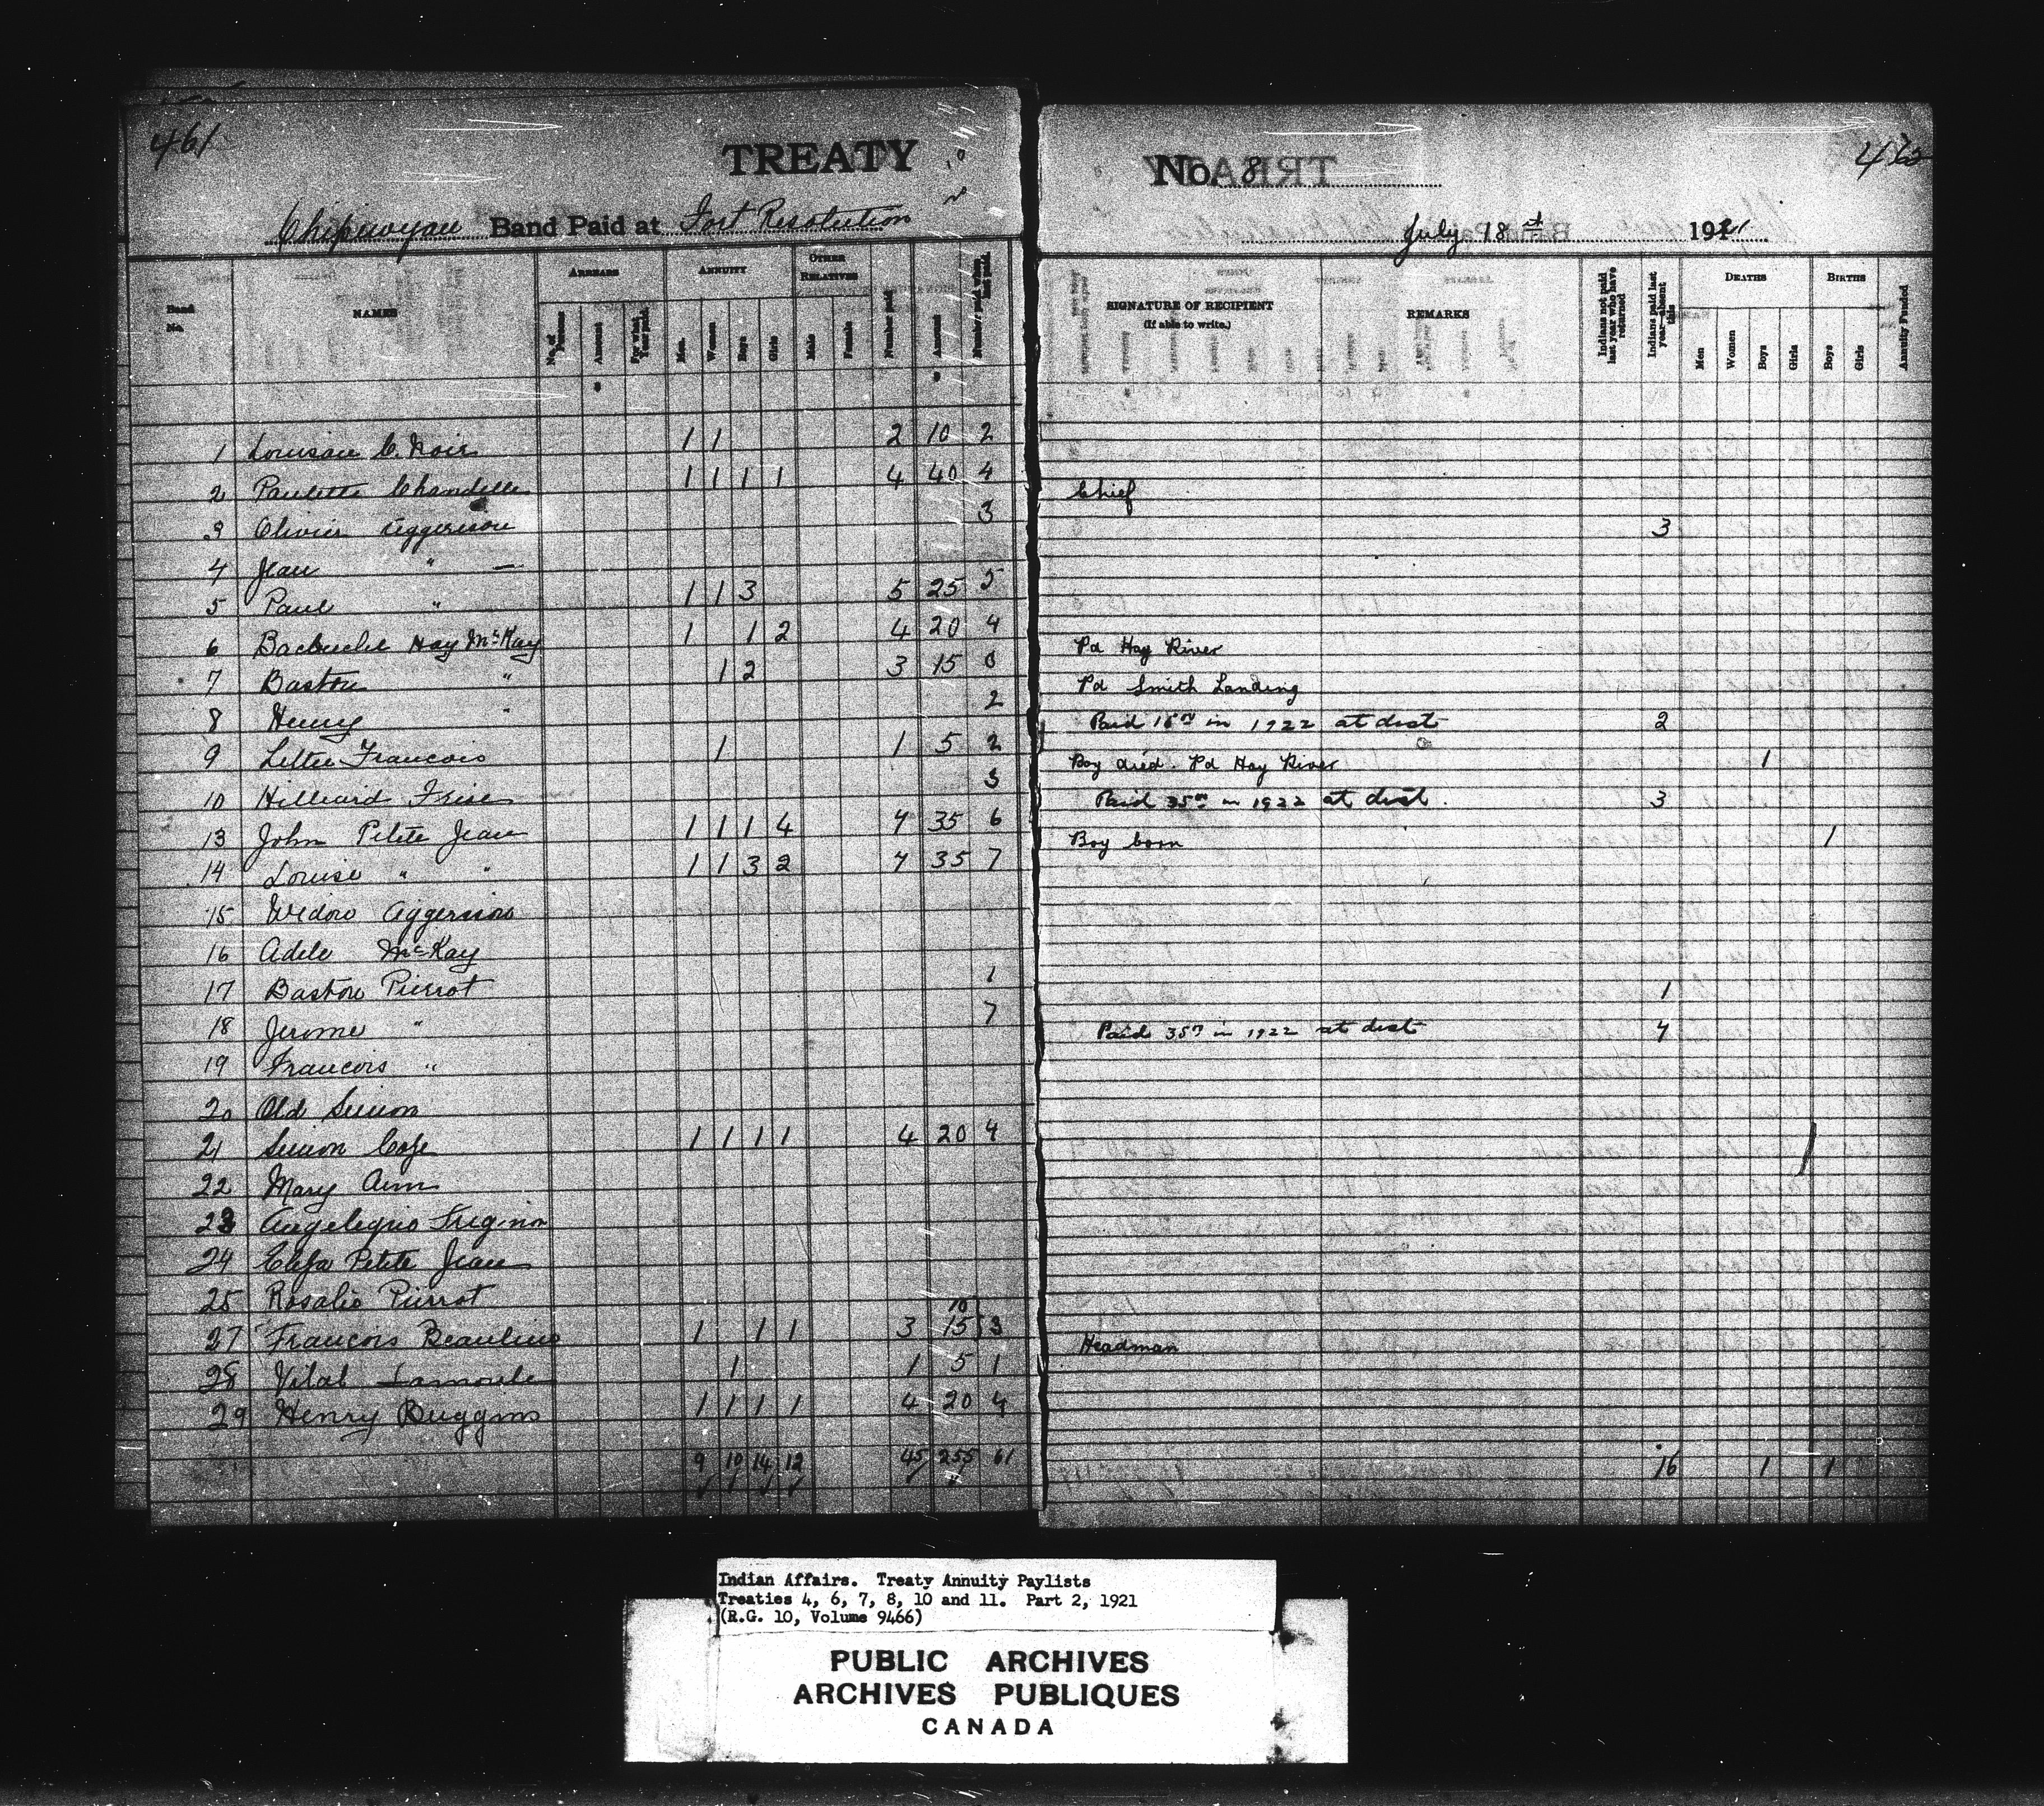 461
TREATY No. 8
462
Chipewyan Band Paid at Fort Resolution July 18 1921
Band No. NAMES ARREARS ANNUITY OTHER RELATIVES Number paid Amount Number paid when last paid. SIGNATURE OF RECIPIENT (If able to write.) REMARKS Indians not paid last year who have returned Indians paid last year—absent this DEATHS BIRTHS Annuity Funded
No. of Persons Amount For what Year paid. Men. Women Boys Girls Male Female Men Women Boys Girls Boys Girls
1 Louison C. Noir 1 1 2 10 2
2 Paulette Chandelle 1 1 1 1 4 40 4 Chief
3 Olivier Aggerson 3 3
4 Jean " —
5 Paul " 1 1 3 5 25 5
6 Hay McKay 1 1 2 4 20 4 Pd Hay River
7 Baston " 1 2 3 15 Pd Smith Landing
8 Henry " 2 Paid in 1922 at dist 2
9 Francois 1 1 5 2 Boy died. Pd Hay River 1
10 Hilliard Frise 3 Paid 35 in 1922 at dist. 3
13 John Petite Jean 1 1 1 4 7 35 6 Boy born 1
14 Louise " " 1 1 3 2 7 35 7
15 Widow Aggerson
16 Adele McKay
17 Baston Pierrot 1 1
18 Jerome " 7 Paid 35 in 1922 at dist 7
19 Francois "
20 Old Simon
21 Simon 1 1 1 1 4 20 4
22 Mary Ann
23
24 Petite Jean
25 Rosalie Pierrot
10
27 Francois Beaulieu 1 1 1 3 15 3 Headman
28 Vital Lamoule 1 1 5 1
29 Henry Buggins 1 1 1 1 4 20 4
9 10 14 12 45 255 61 16 1 1
Indian Affairs. Treaty Annuity Paylists
Treaties 4, 6, 7, 8, 10 and 11. Part 2, 1921
(R.G. 10, Volume 9466)
PUBLIC ARCHIVES
ARCHIVES PUBLIQUES
CANADA